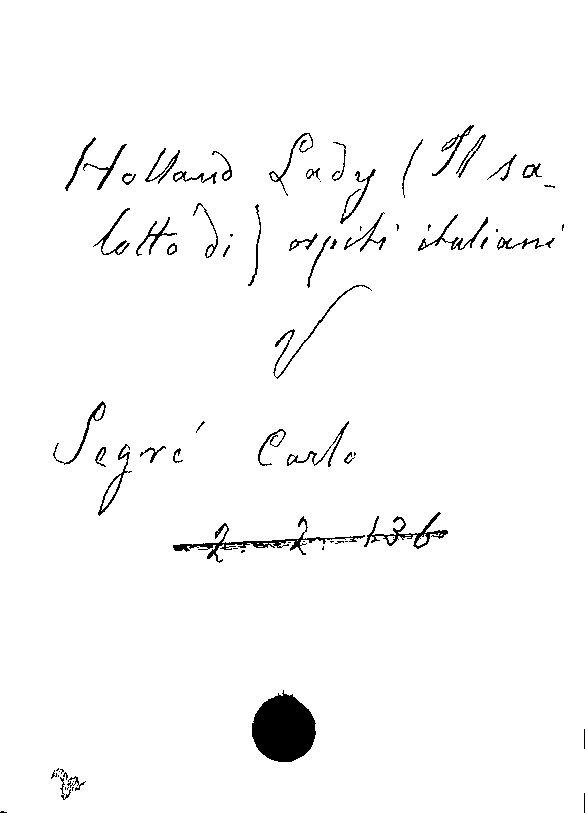 Holland Lady (Il sa-
lotto di) ospiti italiani
V
Segré Carlo
2. 2. 136